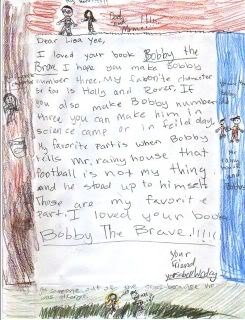 Dear Lisa Yee,
I loved your book Bobby the
Brave I hope you make Bobby
number three. My favorite character
so far is Holly and Rover. If
you also make Bobby number
three you can make him in
science camp or in feild day.
My favorite part is when Bobby
tells Mr. rainy house that
football is not my thing
and he stood up to himself
Those are my favorit e
part. I loved your book
Bobby The Brave.!!!!!
your
friend
someone out of the tree because he
was